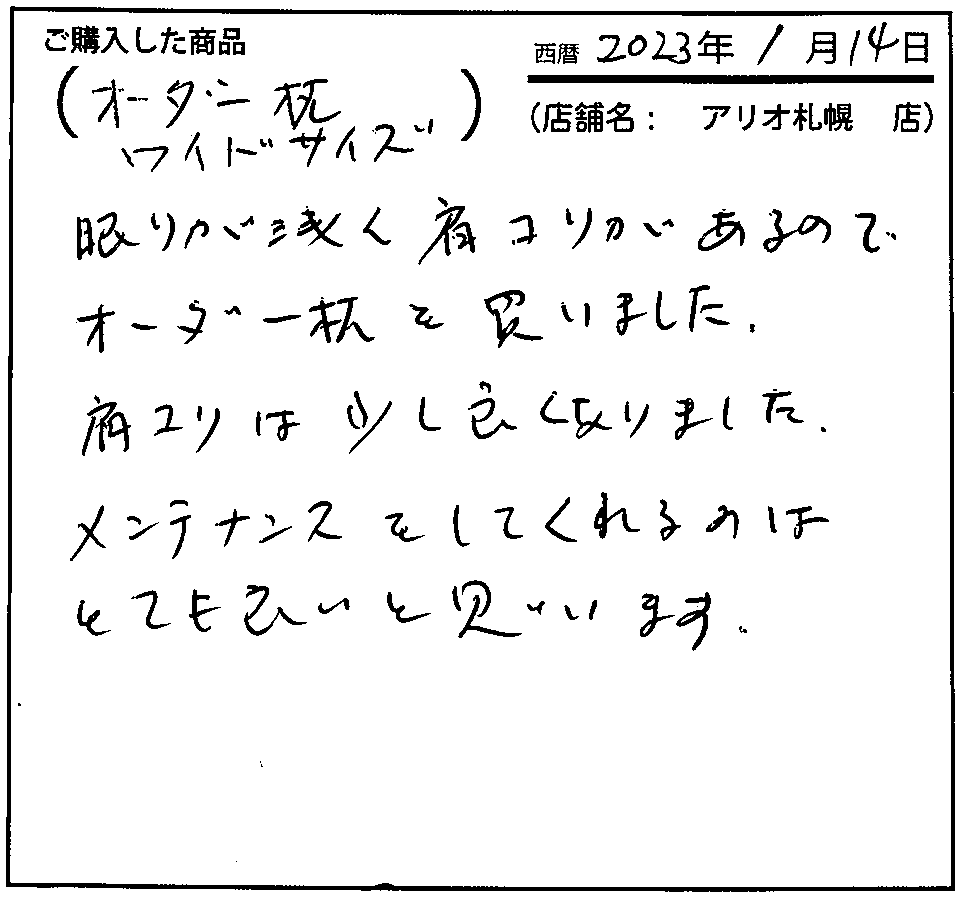 ご購入した商品
西暦 2023年 1月14日
(オーダー枕
ワイドサイズ)
(店舗名: アリオ札幌 店)
眠りが浅く肩コリがあるので
オーダー枕を買いました.
肩コリは少し良くなりました.
メンテナンスをしてくれるのは
とても良いと思います.